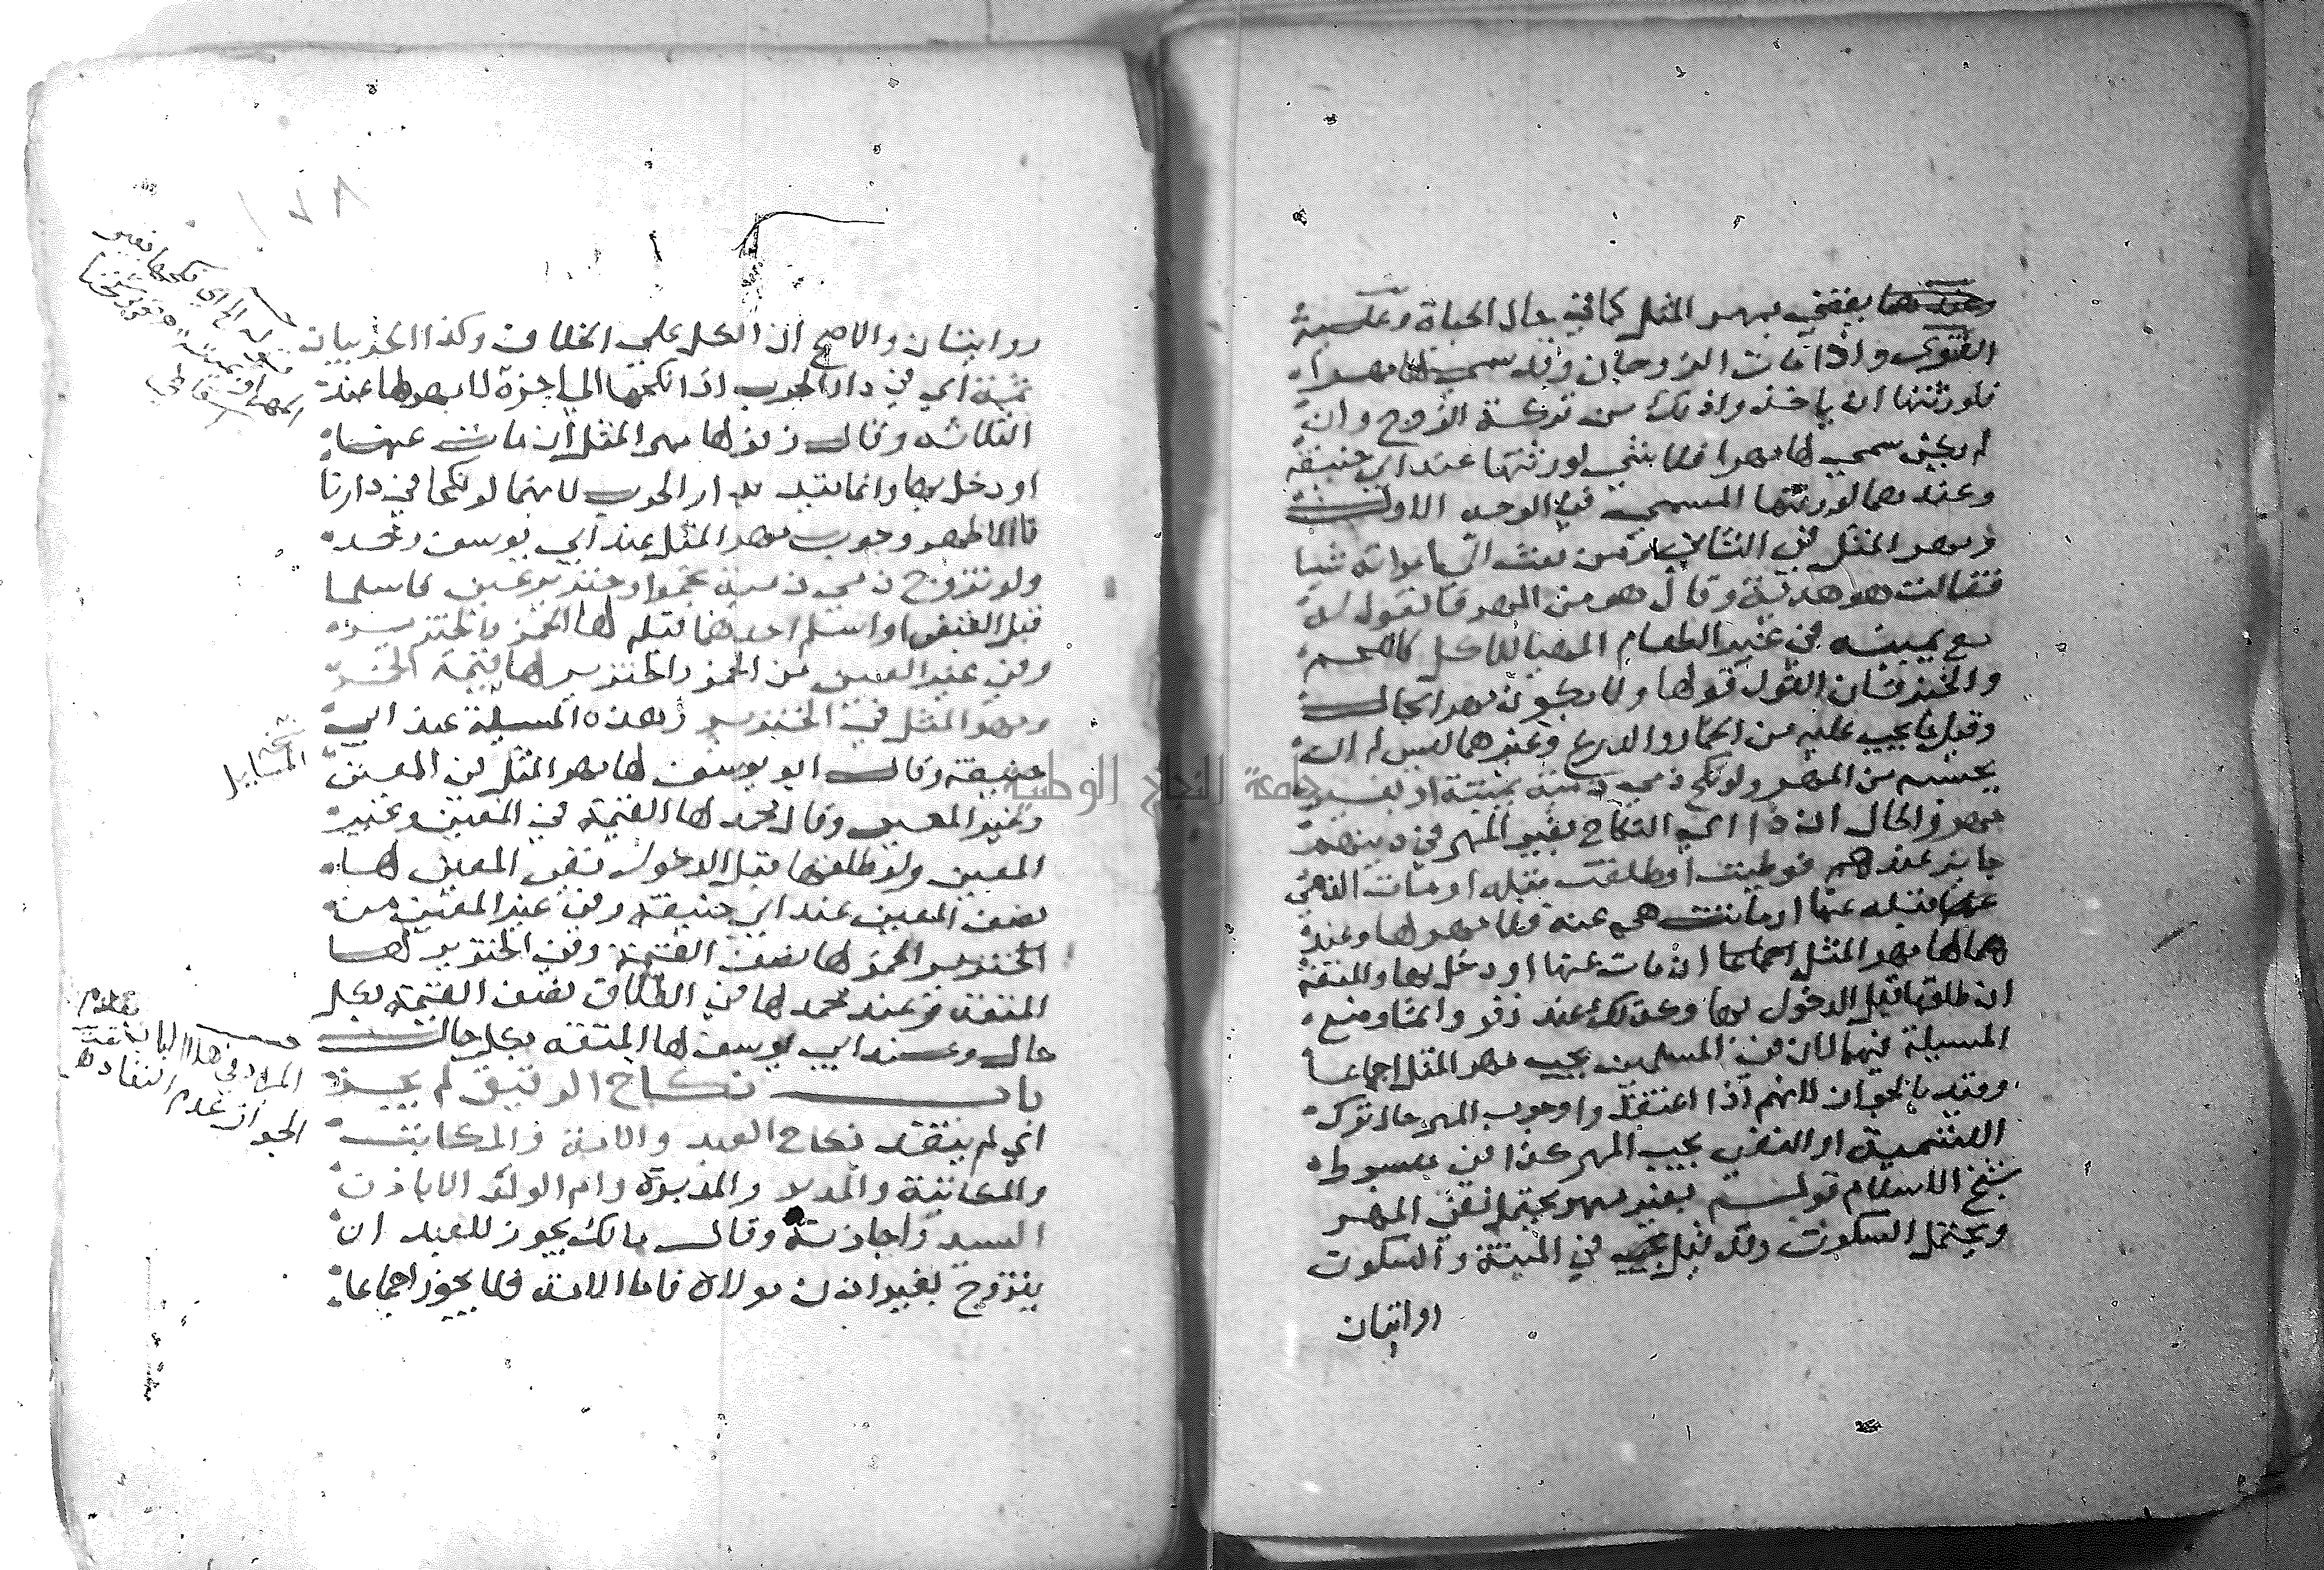 وعندهما يقضي بمهر المثل كما في حال الحياة وعليه
الفتوى واذا مات الزوجان وقد سمي لها مهرا
فلورثتها ان ياخذوا ذلك من تركة الزوج وان
لم يكن سمي لها مهرا فلا شي لورثتها عند ابي حنيفة
وعندهما لورثتها المسمي في الوجه الاول
ومهر المثل في الثاني ومن بعث الي امراته شيا
فقالت هو هدية وقال هو من المهر فالقول له
مع يمينه في غير الطعام المهيا للاكل كاللحم
والخبز فان القول قولها ولا يكون مهرا بحال
وقيل ما يجب عليه من الخمار والدرع وغيرهما ليس له ان
يحبسه من المهر ولو نكح ذمي ذمية بميتة او بغير
مهر والحال ان ذا اي النكاح بغير المهر في دينهم
جايز عندهم فوطيت او طلقت قبله او مات الذمي
عنها قبله او ماتت هي عنه فلا مهر لها وعند
هما لها مهر المثل اجماعا ان مات عنها او دخل بها والمتعة
ان طلقها قبل الدخول بها وكذلك عند زفر وانما وضع
المسيلة فيهما لان في المسلمين يجب مهر المثل اجماعا
وقيد بالجواز لانهم اذا اعتقدوا وجوب المهر حال ترك
التسمية او النفي يجب المهر كذا في مبسوط
شيخ الاسلام قوله بغير مهر يحتمل نفي المهر
ويحتمل السكوت وقد قيل في الميتة والسكوت
روايتان
روايتان والاصح ان الكل علي الخلاف وكذا الحربيان
ثمة اي في دار الحرب اذا نكحها الي اخره لا مهر لها عند
الثلاثه وقال زفر لها مهر المثل ان مات عنها
او دخل بها وانما قيد بدار الحرب لانهما لو نكحا في دارنا
فالاظهر وجوب مهر المثل عند ابي يوسف ومحمد
ولو تزوج ذمي ذمية بخمر او خنزير عين فاسلما
قبل القبض او اسلم احدهما قبله لها الخمر والخنزير
وفي غير العين من الخمر والخنزير لها قيمة الخمر
ومهر المثل في الخنزير وهذه المسيلة عند ابي
حنيفة وقال ابو يوسف لها مهر المثل في المعين
وغير المعين وقال محمد لها القيمة في المعين وغير
المعين ولو طلقها قبل الدخول ففي المعين لها
نصف المعين عند ابي حنيفة وفي غير المعين من
الخنزير الخمر لها نصف القيمة وفي الخنزير لها
المتعة وعند محمد لها في الطلاق نصف القيمة بكل
حال وعند ابي يوسف لها المتعة بكل حال
باب نكاح الرقيق لم يجز
اي لم ينعقد نكاح العبد والامة والمكاتب
والمكاتبة والمدبر والمدبرة وام الولد الا باذن
السيد واجازته وقال مالك يجوز للعبد ان
يتزوج بغير اذن مولاه فاما الامة فلا يجوز اجماعا
المسايل
المراد في هذا الباب
الجواز عدم النفاذ
جامعة النجاح الوطنية